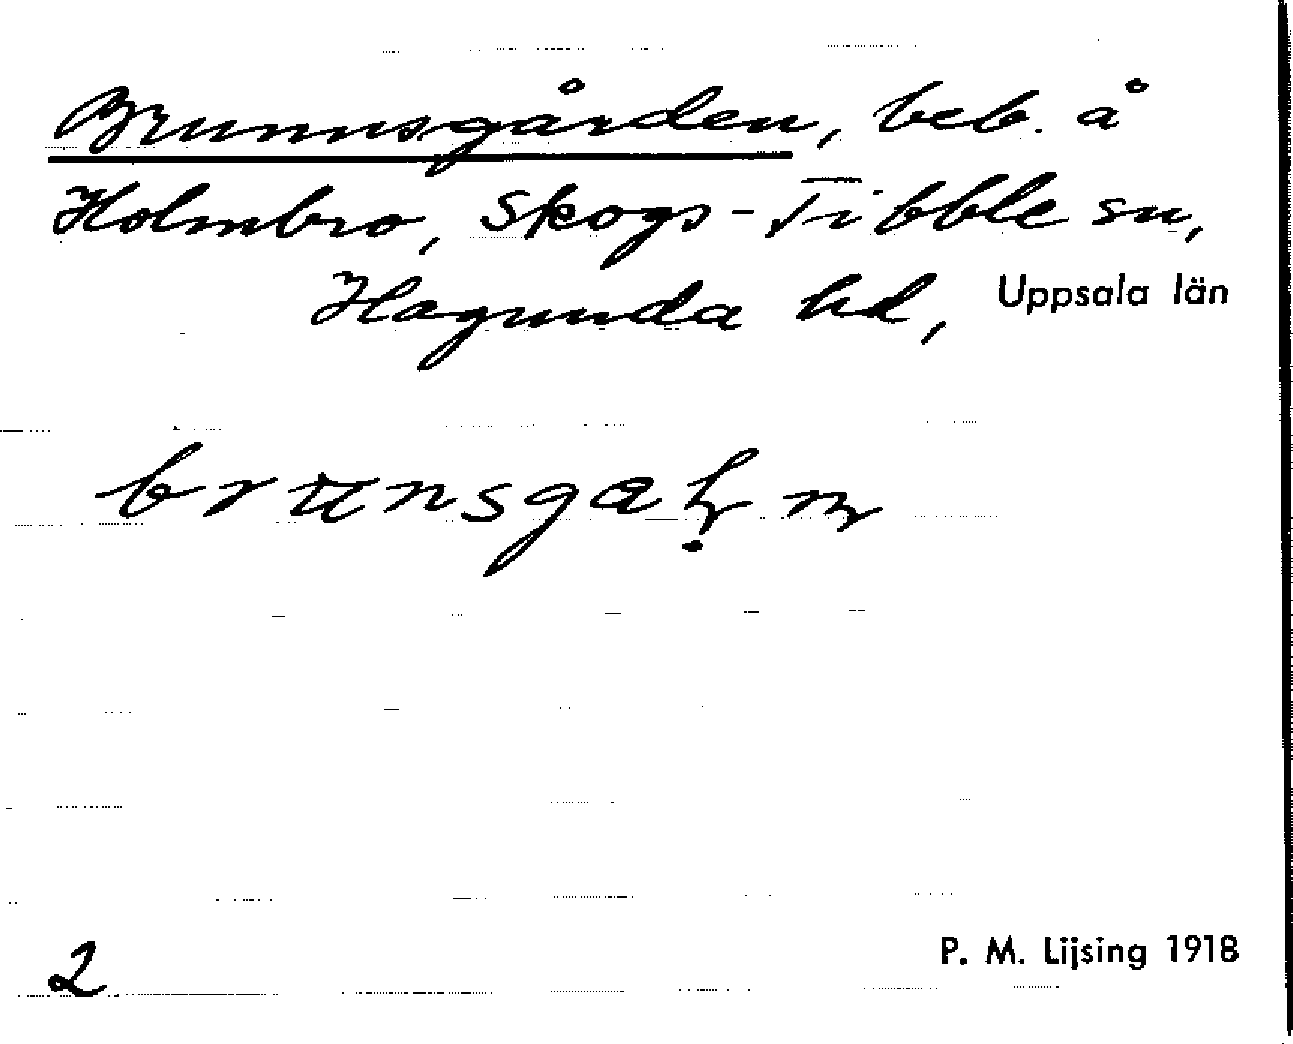 Brunnsgården, beb. å
Holmbro, Skogs-Tibble sn,
Hagunda hd, Uppsala län
2
P. M. Lijsing 1918